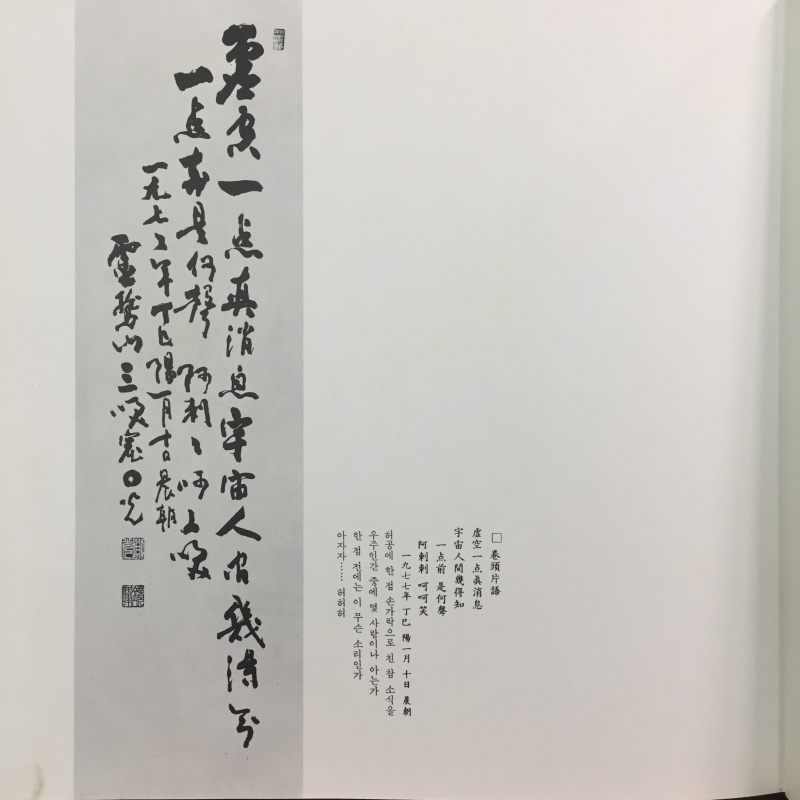 □ 卷頭片語
虛空一点眞消息
宇宙人間幾得知
一点前 是何聲
阿剌剌 呵呵笑
一九七七年 丁巳 陽一月 十日 晨朝
허공에 한 점 손가락으로 친 참 소식을
우주인간 중에 몇 사람이나 아는가
한 점 전에는 이 무슨 소리인가
아자자…… 허허허
虛空一点眞消息宇宙人间幾得知
一点前是何聲 阿剌〻呵〻笑
一九七〻年丁巳陽一月十日晨朝
靈鷲山三笑窟〇光